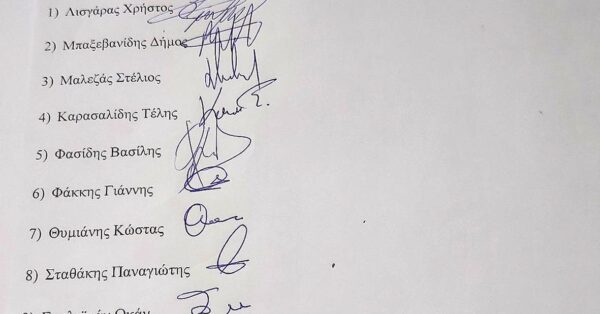 1) Λισγάρας Χρήστος
2) Μπαξεβανίδης Δήμος
3) Μαλεζάς Στέλιος
4) Καρασαλίδης Τέλης
5) Φασίδης Βασίλης
6) Φάκκης Γιάννης
7) Θυμιάνης Κώστας
8) Σταθάκης Παναγιώτης